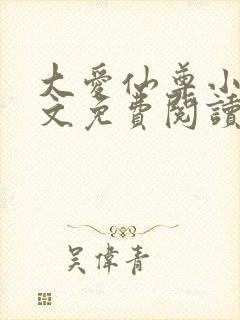 大愛仙尊小
文免費閱讀
吳偉青